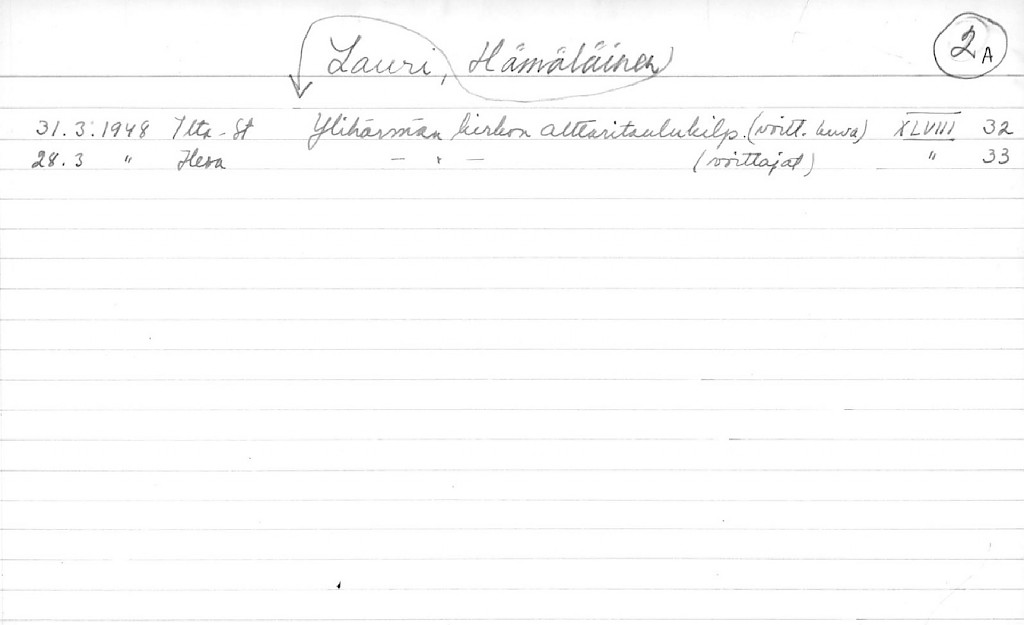 Lauri, Hämäläinen 2A
31.3.1948 Ilta-St Ylihärmän kirkon alttaritaulukilp. (voitt. kuva) XLVIII 32
28.3 " Hesa — " — (voittajat) " 33